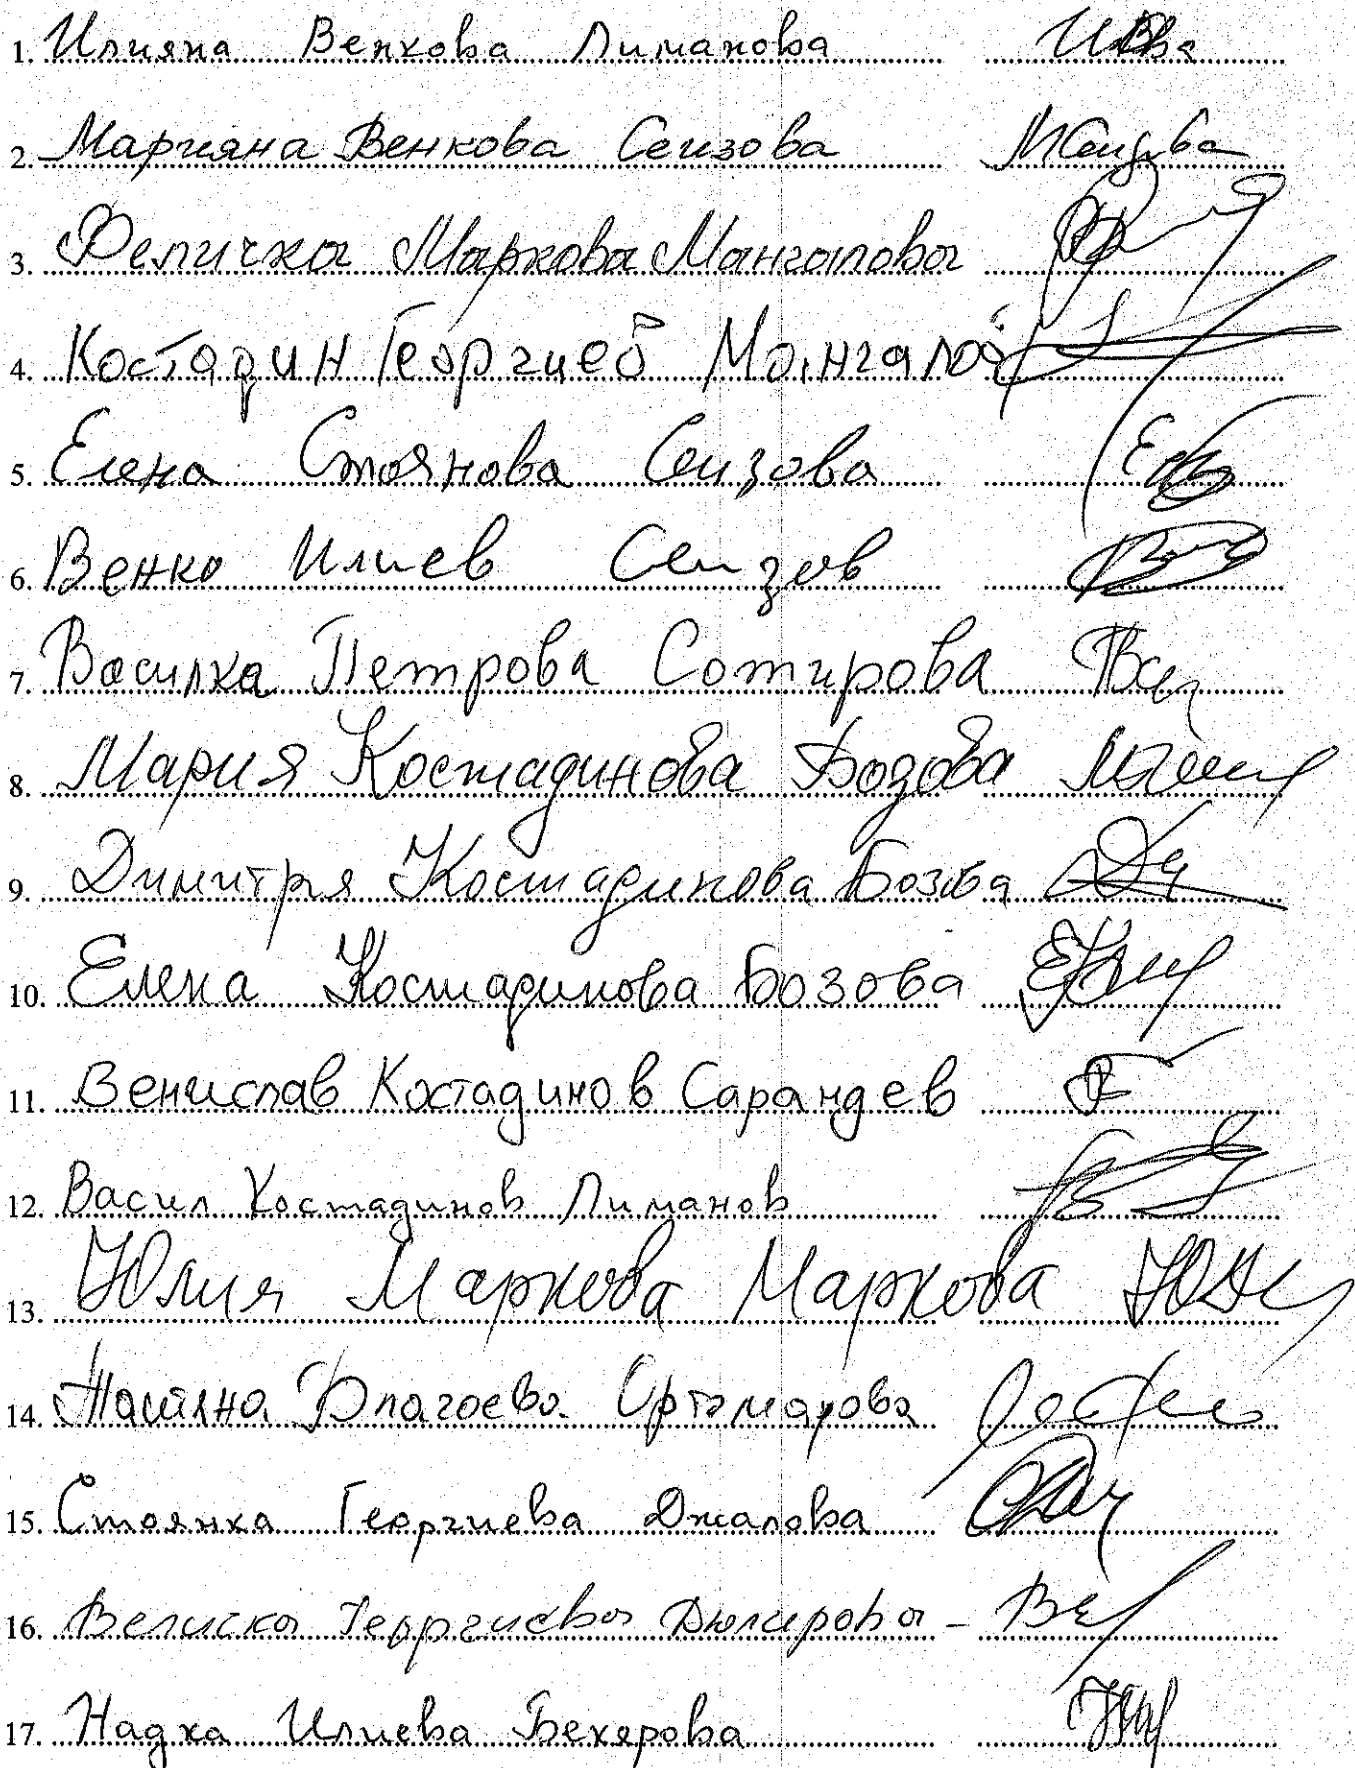 1. Илияна Венкова Лиманова
2. Марияна Венкова Сеизова
3. Величка Маркова Мангалова
4. Костадин Георгиев Мангалов
5. Елена Стоянова Сеизова
6. Венко Илиев Сеизов
7. Василка Петрова Сотирова
8. Мария Костадинова Бозова
9. Димитрия Костадинова Бозова
10. Елена Костадинова Бозова
11. Венислав Костадинов Сарандев
12. Васил Костадинов Лиманов
13. Юлия Маркова Маркова
14. Благоева
15. Стоянка Георгиева Джалова
16. Велиска Георгиева Дюлгерова
17. Надка Илиева Бекярова